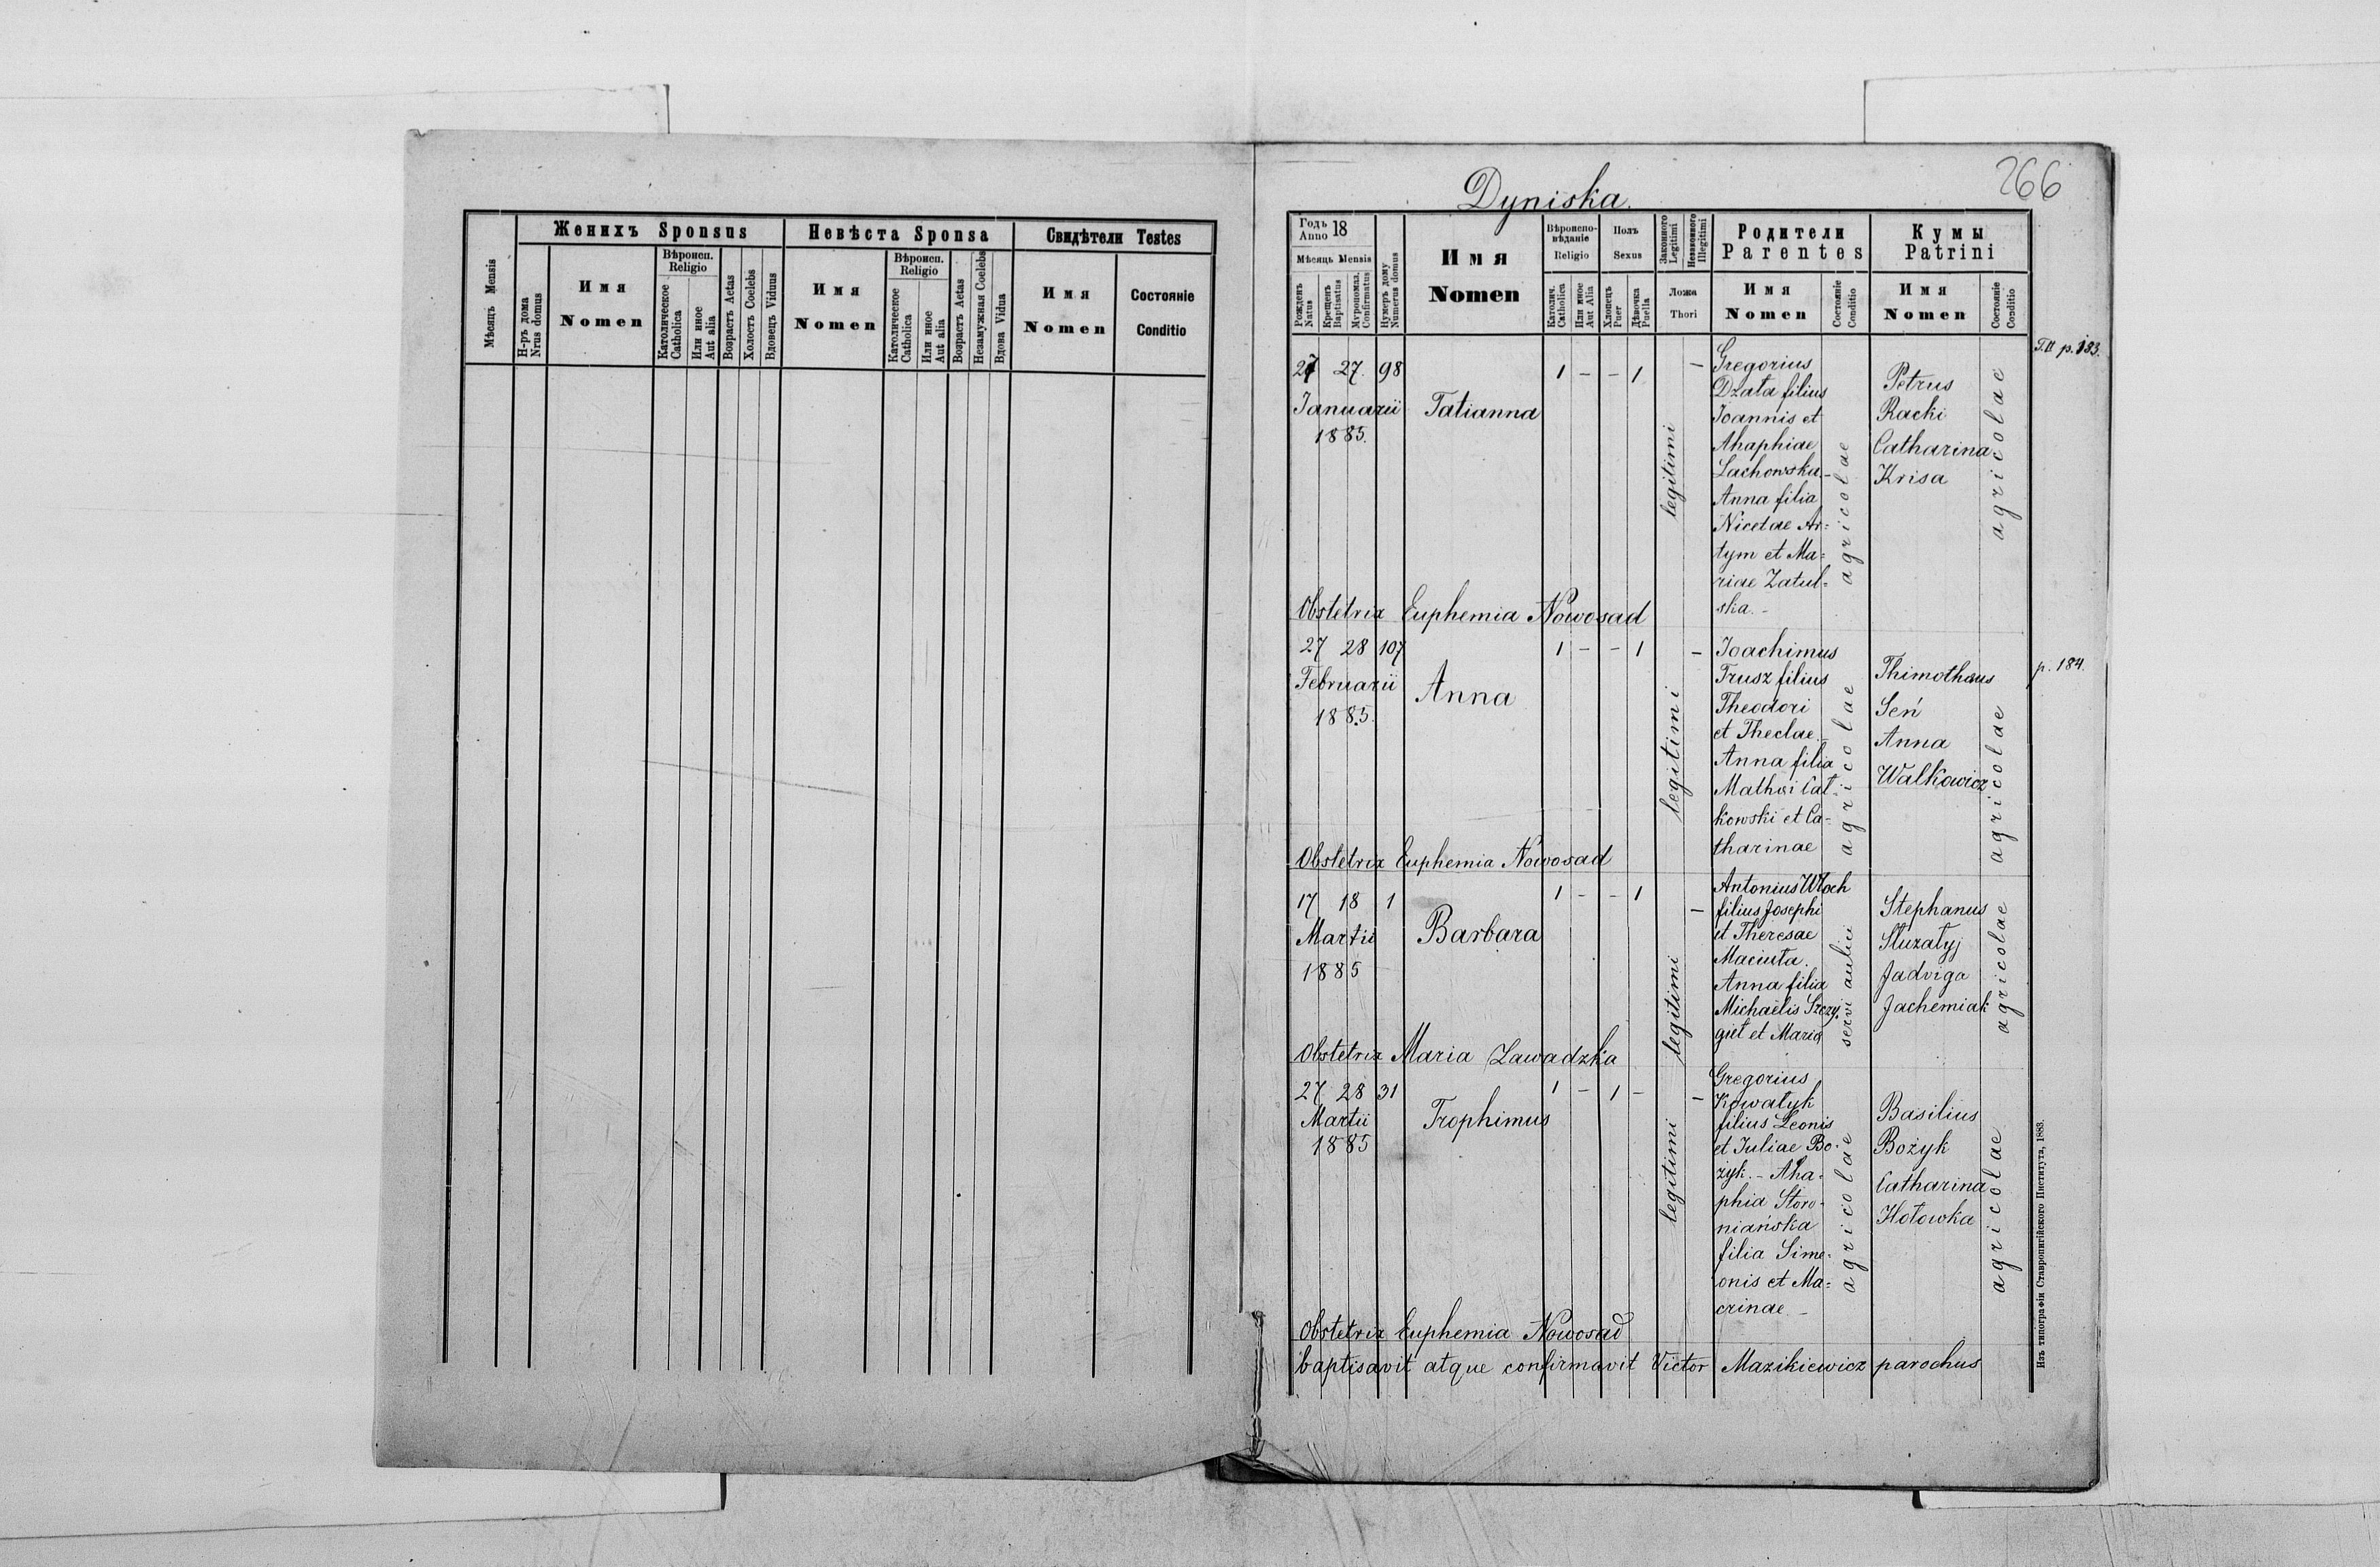 Женихъ Sponsus
Невѣста Sponsa
Свидѣтели Testes
Мѣсяцъ Mensis
Н-ръ дома
Nrus domus
Имя
Nomen
Вѣроисп.
Religio
Католическое
Catholica
Или иное
Aut alia
Возрастъ Aetas
Холостъ Coelebs
Вдовецъ Viduus
Имя
Nomen
Вѣроисп.
Religio
Католическое
Catholica
Или иное
Aut alia
Возрастъ Aetas
Незамужная Coelebs
Вдова Vidua
Имя
Nomen
Состояніе
Conditio
266
Dyniska.
Годъ
Anno 18
Мѣсяцъ Mensis
Рожденъ
Natus
Крещенъ
Baptisatus
Мѵропомаз.
Confirmatus
Нумеръ дому
Numerus domus
Имя
Nomen
Вѣроиспо-
вѣданіе
Religio
Католич.
Catholica
Или иное
Aut Alia
Полъ
Sexus
Хлопецъ
Puer
Дѣвочка
Puella
Законного
Legitimi
Незаконного
Illegitimi
Ложа
Thori
Родители
Parentes
Имя
Nomen
Состояніе
Conditio
Кумы
Patrini
Имя
Nomen
Состояніе
Conditio
T.II p. 183.
27. 98
Januarii
1885.
Tatianna
1 - - 1
legitimi
-
Gregorius
Dzała filius
Joannis et
Ahaphiae
Lachowska.-
Anna filia
Nicetae Ar=
tym et Ma=
riae Zatul=
ska.-
agricolae
Petrus
Racki
Catharina
Krisa
agricolae
Obstetrix Euphemia Nowosad
27 28 107
Februarii
1885.
Anna
1 - - 1
legitimi
-
Joachimus
Trusz filius
Theodori
et Theclae.-
Anna filia
kowski et Ca-
tharinae
agricolae
Thimothaus
Seń
Anna
Walkowicz
agricolae
p. 184.
Obstetrix Euphemia Nowosad
17 18 1
Martii
1885
Barbara
1 - - 1
legitimi
-
Antonius Włoch
filius Josephi
et Theresae
Maciuta.
Anna filia
Michaëlis Szczy.
gieł et Maria
servi aulici
Stephanus
Słuzałyj
Jadviga
Jachemiak
agricolae
Obstetrix Maria Zawadzka
27 28 31
Martii
1885
Trophimus
1 - 1 -
legitimi
-
Gregorius
Kowałyk
filius Leonis
et Juliae Bo-
żyk.- Aha-
phia Storo-
niańska
filia Sime-
onis et Ma=
crinae.-
agricolae
Basilius
Bożyk
Catharina
Hołowka
agricolae
Obstetrix Euphemia Nowosad
baptisavit atque confirmavit Victor Mazikiewicz parochus
Изъ типографіи Ставропигійского Института, 1883.